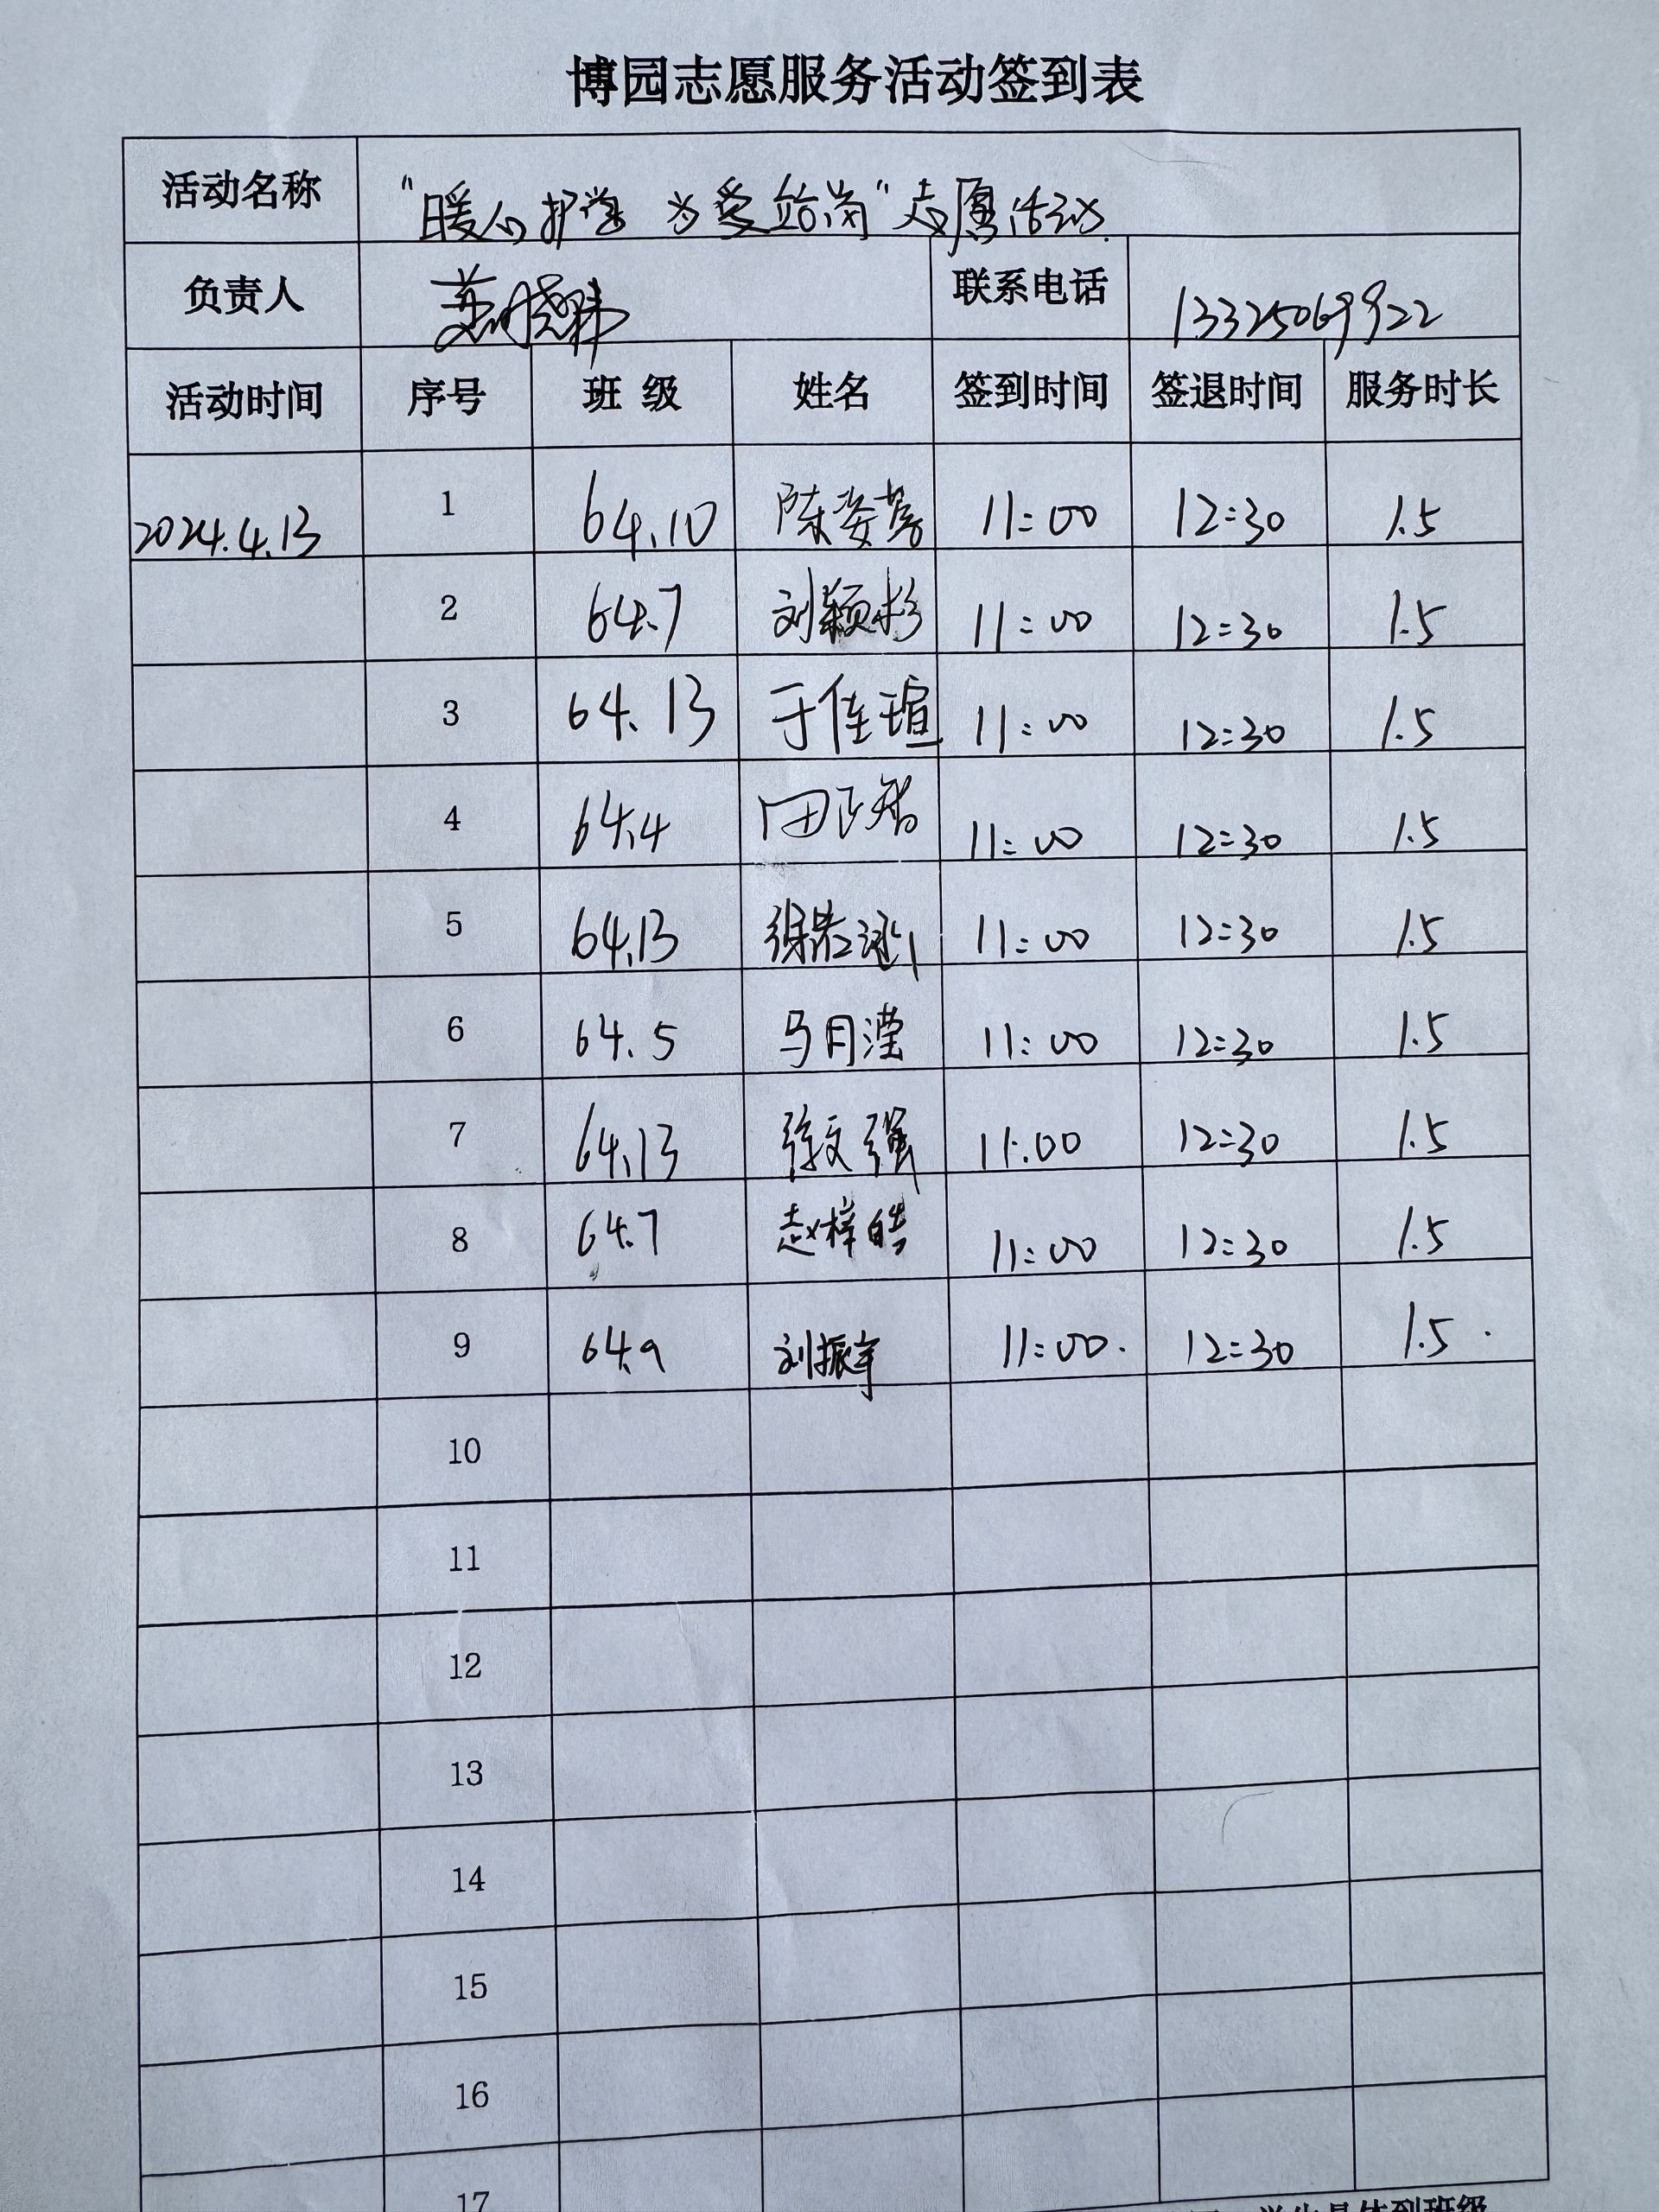 博园志愿服务活动签到表
活动名称 "暖心护学 为爱站岗"志愿活动.
负责人 苏晓玮 联系电话 13325069922
活动时间 序号 班 级 姓名 签到时间 签退时间 服务时长
2024.4.13 1 64.10 陈姿蓉 11:00 12:30 1.5
2 64.7 刘颖杉 11:00 12:30 1.5
3 64.13 于佳瑄 11:00 12:30 1.5
4 64.4 11:00 12:30 1.5
5 64.13 11:00 12:30 1.5
6 64.5 马月滢 11:00 12:30 1.5
7 64.13 徐文强 11:00 12:30 1.5
8 64.7 赵梓皓 11:00 12:30 1.5
9 64.9 刘振宇 11:00. 12:30 1.5.
10
11
12
13
14
15
16
17 学生具体到班级